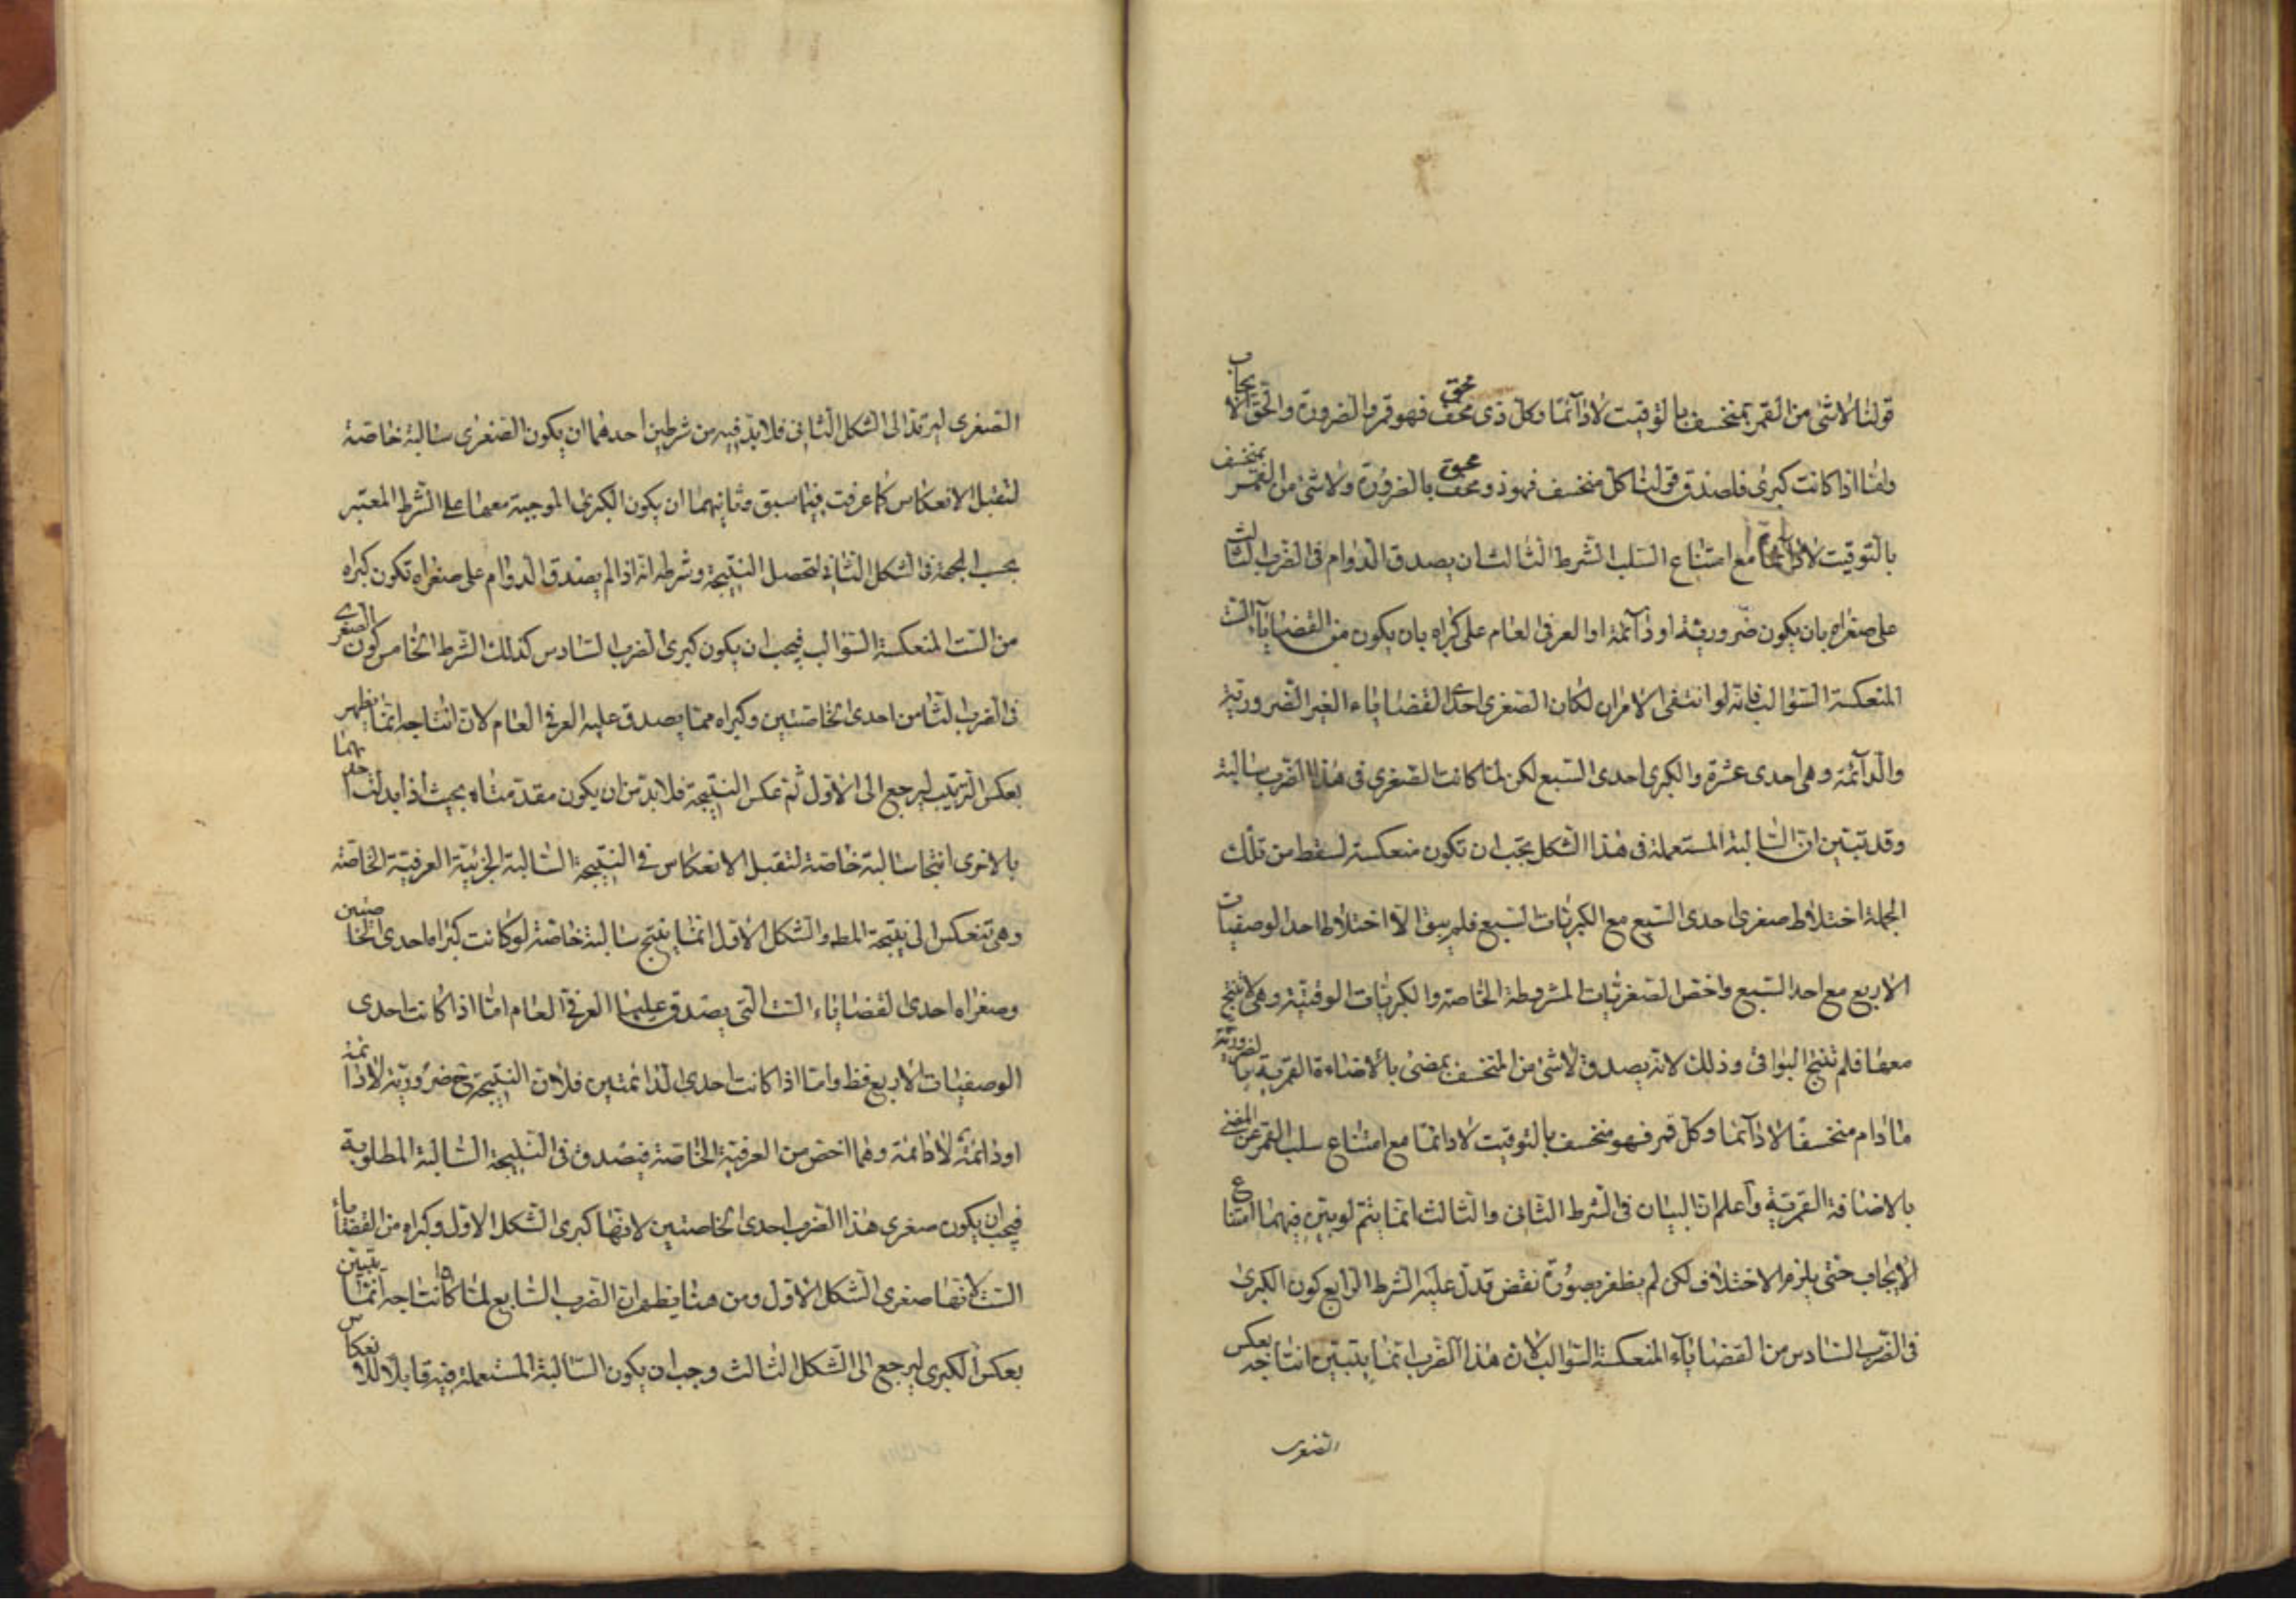 قولنا لا شئ من القمر بمنخسف بالتوقيت لا دائمًا وكل ذى محق فهو قمر بالضرورة والحق الايجاب
واما اذا كانت كبرى فلصدق قولنا كل منخسف فهو ذو محق بالضرورة ولا شئ من القمر بمنخسف
بالتوقيت لا دائما مع امتناع السلب الشرط الثالث ان يصدق الدوام فى الضرب الثالث
على صغراه بان يكون ضرورية او دآئمة او العرفى العام على كبراه بان يكون من القضاياء الست
المنعكسة السوالب فانه لو انتفى الامران لكان الصغرى احدى القضاياء الغير الضرورية
والدآئمة وهى احدى عشرة والكبرى احدى السبع لكن لما كانت الصغرى فى هذا الضرب سالبة
وقد تبين ان السالبة المستعملة فى هذا الشكل يجب ان تكون منعكسة لسقط من تلك
الجملة اختلاط صغرى احدى السبع مع الكبريات السبع فلم يبق الا اختلاط احد الوصفيات
الاربع مع احد السبع واخص الصغريات المشروطة الخاصة والكبريات الوقتية وهى لا تنتج
معها فلم تنتج البواقى وذلك لانه يصدق لا شئ من المنخسف بمضئ بالاضاءة القمرية بالضرورة
ما دام منخسفًا لا دآئما وكل قمر فهو منخسف بالتوقيت لا دائمًا مع امتناع سلب القمر عن المضئ
بالاضافة القمرية وآعلم ان البيان فى الشرط الثانى والثالث انما يتم لو بين فيهما امتناع
الايجاب حتى يلزم الاختلاف لكن لم يظفر بصورة نقض تدل عليه الشرط الرابع كون الكبرى
فى الضرب السادس من القضاياء المنعكسة السوالب لان هذا الضرب انما يتبين انتاجه بعكس
الصغرى
الصغرى ليرتد الى الشكل الثانى فلا بد فيه من شرطين احدهما ان يكون الصغرى سالبة خاصة
لتقبل الانعكاس كما عرفت فيما سبق وثانيهما ان يكون الكبرى الموجبة معها على الشرط المعتبر
بحسب الجهة فى الشكل الثانى لتحصل النتيجة وشرطه انه اذا لم يصدق الدوام على صغراه تكون كبراه
من الست المنعكسة السوالب فيجب ان يكون كبرى الضرب السادس كذلك الشرط الخامس كون الصغرى
فى الضرب الثامن احدى الخاصتين وكبراه مما يصدق عليه العرفى العام لان انتاجه انما يظهر
بعكس الترتيب ليرجع الى الاول ثم عكس النتيجة فلا بد من ان يكون مقدمتاه بحيث اذا بدلت احديهما
بالاخرى انتجا سالبة خاصة لتقبل الانعكاس فى النتيجة السالبة الجزئية العرفية الخاصة
وهى تنعكس الى نتيجة المط والشكل الاول انما ينتج سالبة خاصة لو كانت كبراه احدى الخاصتين
وصغراه احدى القضاياء الست التى يصدق عليها العرفى العام اما اذا كانت احدى
الوصفيات الاربع فظ واما اذا كانت احدى الدائمتين فلان النتيجة ح ضرورية لا دائمة
او دائمة لا دائمة وهما اخص من العرفية الخاصة فيصدق فى النتيجة السالبة المطلوبة
فيجب ان يكون صغرى هذا الضرب احدى الخاصتين لانها كبرى الشكل الاول وكبراه من القضاياء
الست لانها صغرى الشكل الاول ومن هنا يظهر ان الضرب السابع لما كان انتاجه انما يتبين
بعكس الكبرى ليرجع الى الشكل الثالث وجب ان يكون السالبة المستعملة فيه قابلا للانعكاس